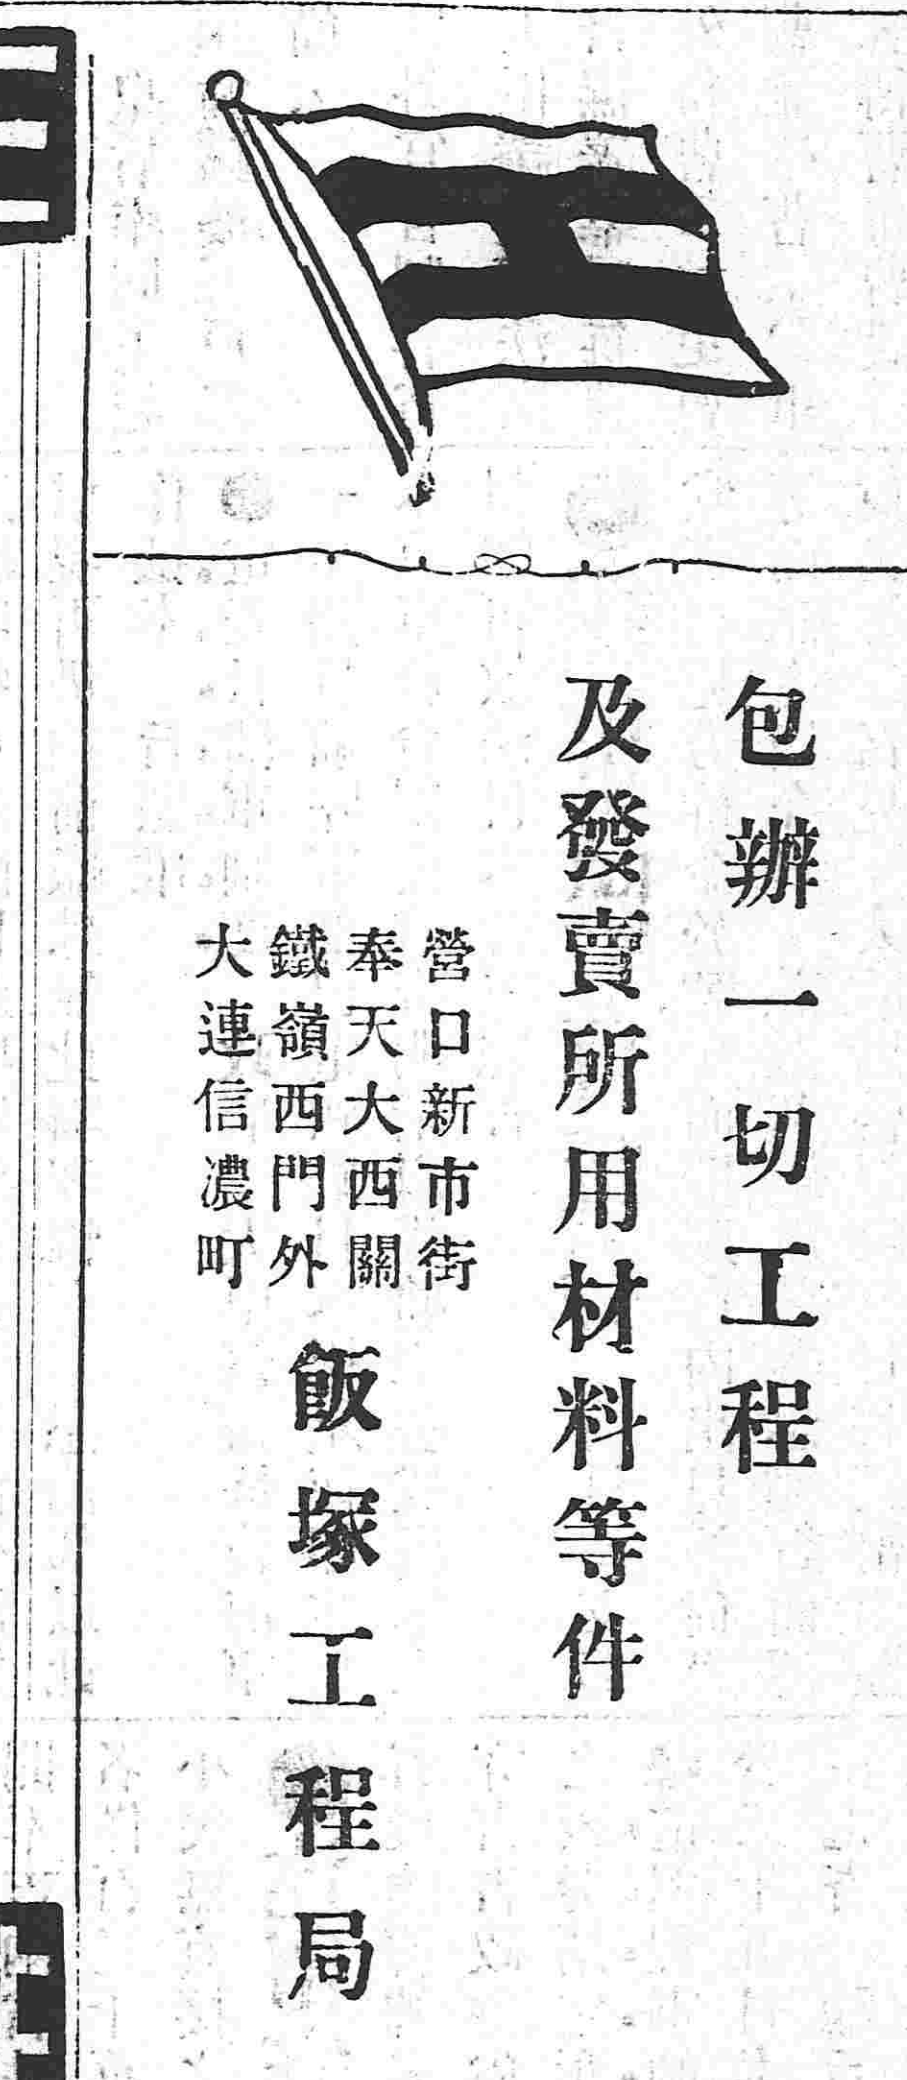 包辦一切工程
及發賣所用材料等件
營口新市街
奉天大西關
鐵嶺西門外
大連信濃町
飯塚工程局